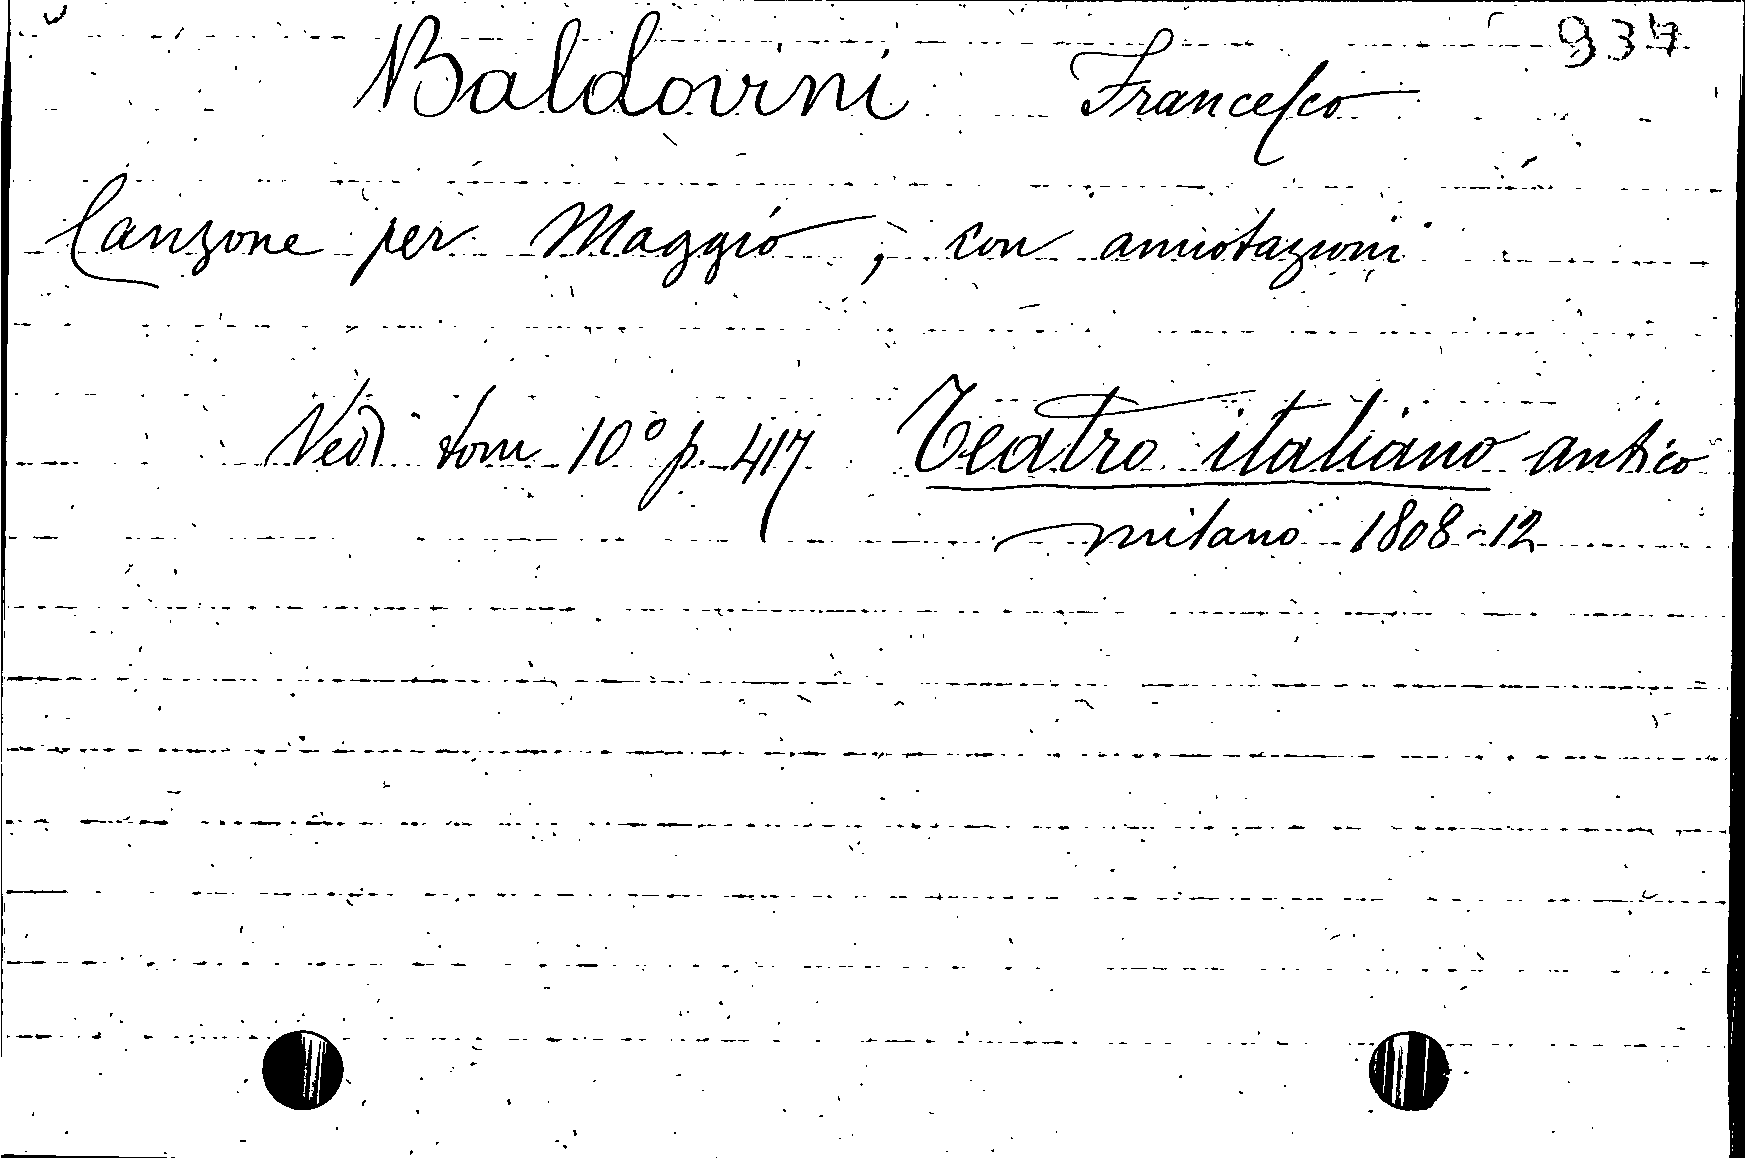 937
Baldovini Francesco
Canzone per Maggio, con annotazioni
Vedi tom 10° p. 417 Teatro italiano antico
Milano 1808-12